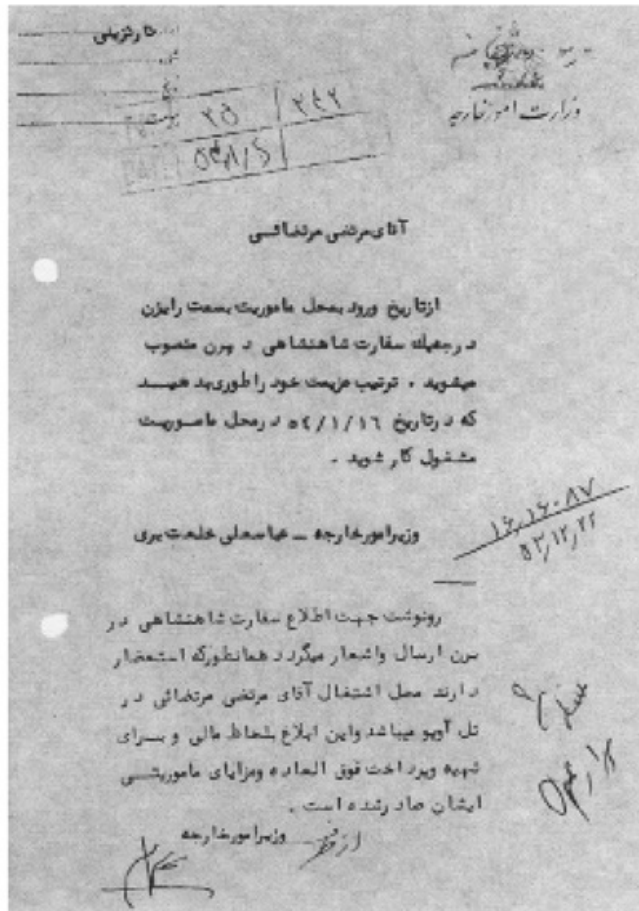 وزارت امور خارجه
۲۵ / ۲۴۲
آقای مرتضی مرتضائی
ازتاریخ ورود بمحل ماموریت بسمت رایزن
درجه‌یك سفارت شاهنشاهی در برن منصوب
میشوید . ترتیب عزیمت خود را طوری بدهید
که در تاریخ ۵٤/۱/۱٦ در محل ماموریت
مشغول کار شوید .
وزیرامورخارجه ــ عباسعلی خلعت بری
۱۶٫۱۶۰۸۷
۵۳٫۱۲٫۲۲
رونوشت جهت اطلاع سفارت شاهنشاهی در
برن ارسال واشعار میگردد همانطورکه استحضار
دارند محل اشتغال آقای مرتضی مرتضائی در
تل آویو میباشد واین ابلاغ بلحاظ مالی و برای
تهیه وپرداخت فوق العاده ومزایای ماموریتی
ایشان صادر شده است .
از طرف وزیرامورخارجه